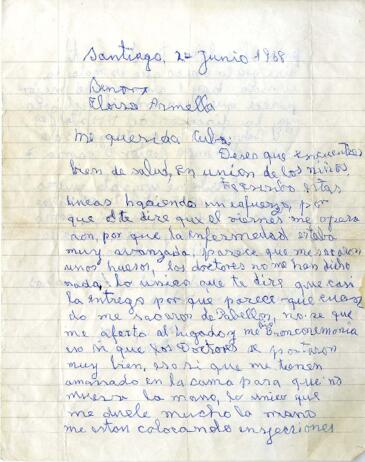 Santiago, 2 Junio 1968
Señora
Eloisa Armella
Mi querida
Deseo que te encuentres
bien de salud, En unión de los niños
estas
lineas haciendo un esfuerzo, por
que te dire que el viernes me opera
ron, por que la enfermedad estaba
muy avanzada, parece que me sacaron
unos huesos, los doctores no me han dicho
nada, lo unico que te dire que casi
la entrego por que parece que cuan
do me sacaron de Pabellon, no se que
me afecto al higado y me Bronconemonia
eso si que los Doctores se portaron
muy bien, eso si que me tienen
amarrado en la cama para que no
mueva la mano, lo unico que
me duele mucho la mano
me estan colocando inyecciones